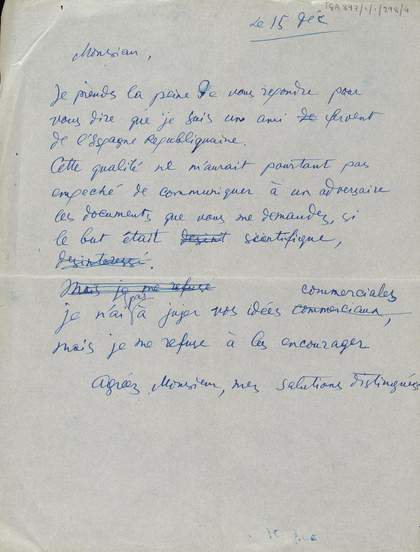 Le 15 Déc
Monsieur,
Je prends la peine de vous repondre pour
vous dire que je suis un ami de fervent
de l'Espagne Republiquaine.
Cette qualité ne m'aurait pourtant pas
empeché de communiquer à un adversaire
les documents que vous me demandez, si
le but était desint scientifique,
desinteressé.
Mais je me refuse commerciales
je n'ai pas à juger vos idées commerciaux,
mais je me refuse à les encourager
Agréez Monsieur, mes salutions distinguées